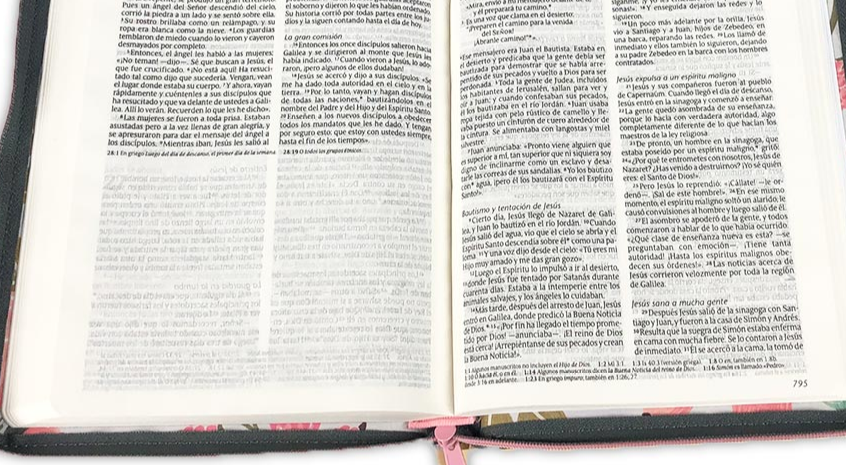 Pues un ángel del Señor descendió del cielo,
corrió la piedra a un lado y se sentó sobre ella.
³Su rostro brillaba como un relámpago, y su
ropa era blanca como la nieve. ⁴Los guardias
temblaron de miedo cuando lo vieron y cayeron
desmayados por completo.
⁵Entonces, el ángel les habló a las mujeres:
«¡No teman! —dijo—. Sé que buscan a Jesús, el
que fue crucificado. ⁶¡No está aquí! Ha resuci-
tado tal como dijo que sucedería. Vengan, vean
el lugar donde estaba su cuerpo. ⁷Y ahora, vayan
rápidamente y cuéntenles a sus discípulos que
ha resucitado y que va delante de ustedes a Gali-
lea. Allí lo verán. Recuerden lo que les he dicho».
⁸Las mujeres se fueron a toda prisa. Estaban
asustadas pero a la vez llenas de gran alegría, y
se apresuraron para dar el mensaje del ángel a
los discípulos. ⁹Mientras iban, Jesús les salió al
28:1 En griego Luego del día de descanso, el primer día de la semana
el soborno y dijeron lo que les habían ordenado.
Su historia corrió por todas partes entre los ju-
díos y la siguen contando hasta el día de hoy.
La gran comisión
¹⁶Entonces los once discípulos salieron hacia
Galilea y se dirigieron al monte que Jesús les
había indicado. ¹⁷Cuando vieron a Jesús, lo ado-
raron, ¡pero algunos de ellos dudaban!
¹⁸Jesús se acercó y dijo a sus discípulos: «Se
me ha dado toda autoridad en el cielo y en la
tierra. ¹⁹Por lo tanto, vayan y hagan discípulos
de todas las naciones,* bautizándolos en el
nombre del Padre y del Hijo y del Espíritu Santo.
²⁰Enseñen a los nuevos discípulos a obedecer
todos los mandatos que les he dado. Y tengan
por seguro esto: que estoy con ustedes siempre,
hasta el fin de los tiempos».
28:19 O todos los grupos étnicos.
y él preparará tu camino.*
Es una voz que clama en el desierto:
"¡Preparen el camino para la venida
del Señor!
¡Ábranle camino!"*».
Ese mensajero era Juan el Bautista. Estaba en
el desierto y predicaba que la gente debía ser
bautizada para demostrar que se había arre-
pentido de sus pecados y vuelto a Dios para ser
perdonada. Toda la gente de Judea, incluidos
los habitantes de Jerusalén, salían para ver y
oír a Juan; y cuando confesaban sus pecados,
él los bautizaba en el río Jordán. Juan usaba
ropa tejida con pelo rústico de camello y lle-
vaba puesto un cinturón de cuero alrededor de
la cintura. Se alimentaba con langostas y miel
silvestre.
Juan anunciaba: «Pronto viene alguien que
es superior a mí, tan superior que ni siquiera soy
digno de inclinarme como un esclavo y desa-
tarle las correas de sus sandalias. ⁸Yo los bautizo
con* agua, ¡pero él los bautizará con el Espíritu
Santo!».
Bautismo y tentación de Jesús
⁹Cierto día, Jesús llegó de Nazaret de Gali-
lea, y Juan lo bautizó en el río Jordán. ¹⁰Cuando
Jesús salió del agua, vio que el cielo se abría y el
Espíritu Santo descendía sobre él* como una pa-
loma. ¹¹Y una voz dijo desde el cielo: «Tú eres mi
Hijo muy amado y me das gran gozo».
¹²Luego el Espíritu lo impulsó a ir al desierto,
¹³donde Jesús fue tentado por Satanás durante
cuarenta días. Estaba a la intemperie entre los
animales salvajes, y los ángeles lo cuidaban.
¹⁴Más tarde, después del arresto de Juan, Jesús
entró en Galilea, donde predicó la Buena Noticia
de Dios.* ¹⁵«¡Por fin ha llegado el tiempo prome-
tido por Dios! —anunciaba—. ¡El reino de Dios
está cerca! ¡Arrepiéntanse de sus pecados y crean
la Buena Noticia!».
y enseguida dejaron las redes y lo
siguieron.
¹⁹Un poco más adelante por la orilla, Jesús
vio a Santiago y a Juan, hijos de Zebedeo, en
una barca, reparando las redes. ²⁰Los llamó de
inmediato y ellos también lo siguieron, dejando
a su padre Zebedeo en la barca con los hombres
contratados.
Jesús expulsa a un espíritu maligno
²¹Jesús y sus compañeros fueron al pueblo
de Capernaúm. Cuando llegó el día de descanso,
Jesús entró en la sinagoga y comenzó a enseñar.
²²La gente quedó asombrada de su enseñanza,
porque lo hacía con verdadera autoridad, algo
completamente diferente de lo que hacían los
maestros de la ley religiosa.
²³De pronto, un hombre en la sinagoga, que
estaba poseído por un espíritu maligno,* gritó:
²⁴«¿Por qué te entrometes con nosotros, Jesús de
Nazaret? ¿Has venido a destruirnos? ¡Yo sé quién
eres: el Santo de Dios!».
²⁵Pero Jesús lo reprendió: «¡Cállate! —le or-
denó—. ¡Sal de este hombre!». ²⁶En ese mismo
momento, el espíritu maligno soltó un alarido, le
causó convulsiones al hombre y luego salió de él.
²⁷El asombro se apoderó de la gente, y todos
comenzaron a hablar de lo que había ocurrido.
«¿Qué clase de enseñanza nueva es esta? —se
preguntaban con emoción—. ¡Tiene tanta
autoridad! ¡Hasta los espíritus malignos obe-
decen sus órdenes!». ²⁸Las noticias acerca de
Jesús corrieron velozmente por toda la región
de Galilea.
Jesús sana a mucha gente
²⁹Después Jesús salió de la sinagoga con San-
tiago y Juan, y fueron a la casa de Simón y Andrés.
³⁰Resulta que la suegra de Simón estaba enferma
en cama con mucha fiebre. Se lo contaron a Jesús
de inmediato. ³¹Él se acercó a la cama, la tomó de
1:1 Algunos manuscritos no incluyen el Hijo de Dios.
1:8 O en; también en 1:8b.
1:14 Algunos manuscritos dicen la Buena Noticia del reino de Dios. 1:16 Simón es llamado «Pedro»
1:23 En griego impuro; también en 1:26, 27
795